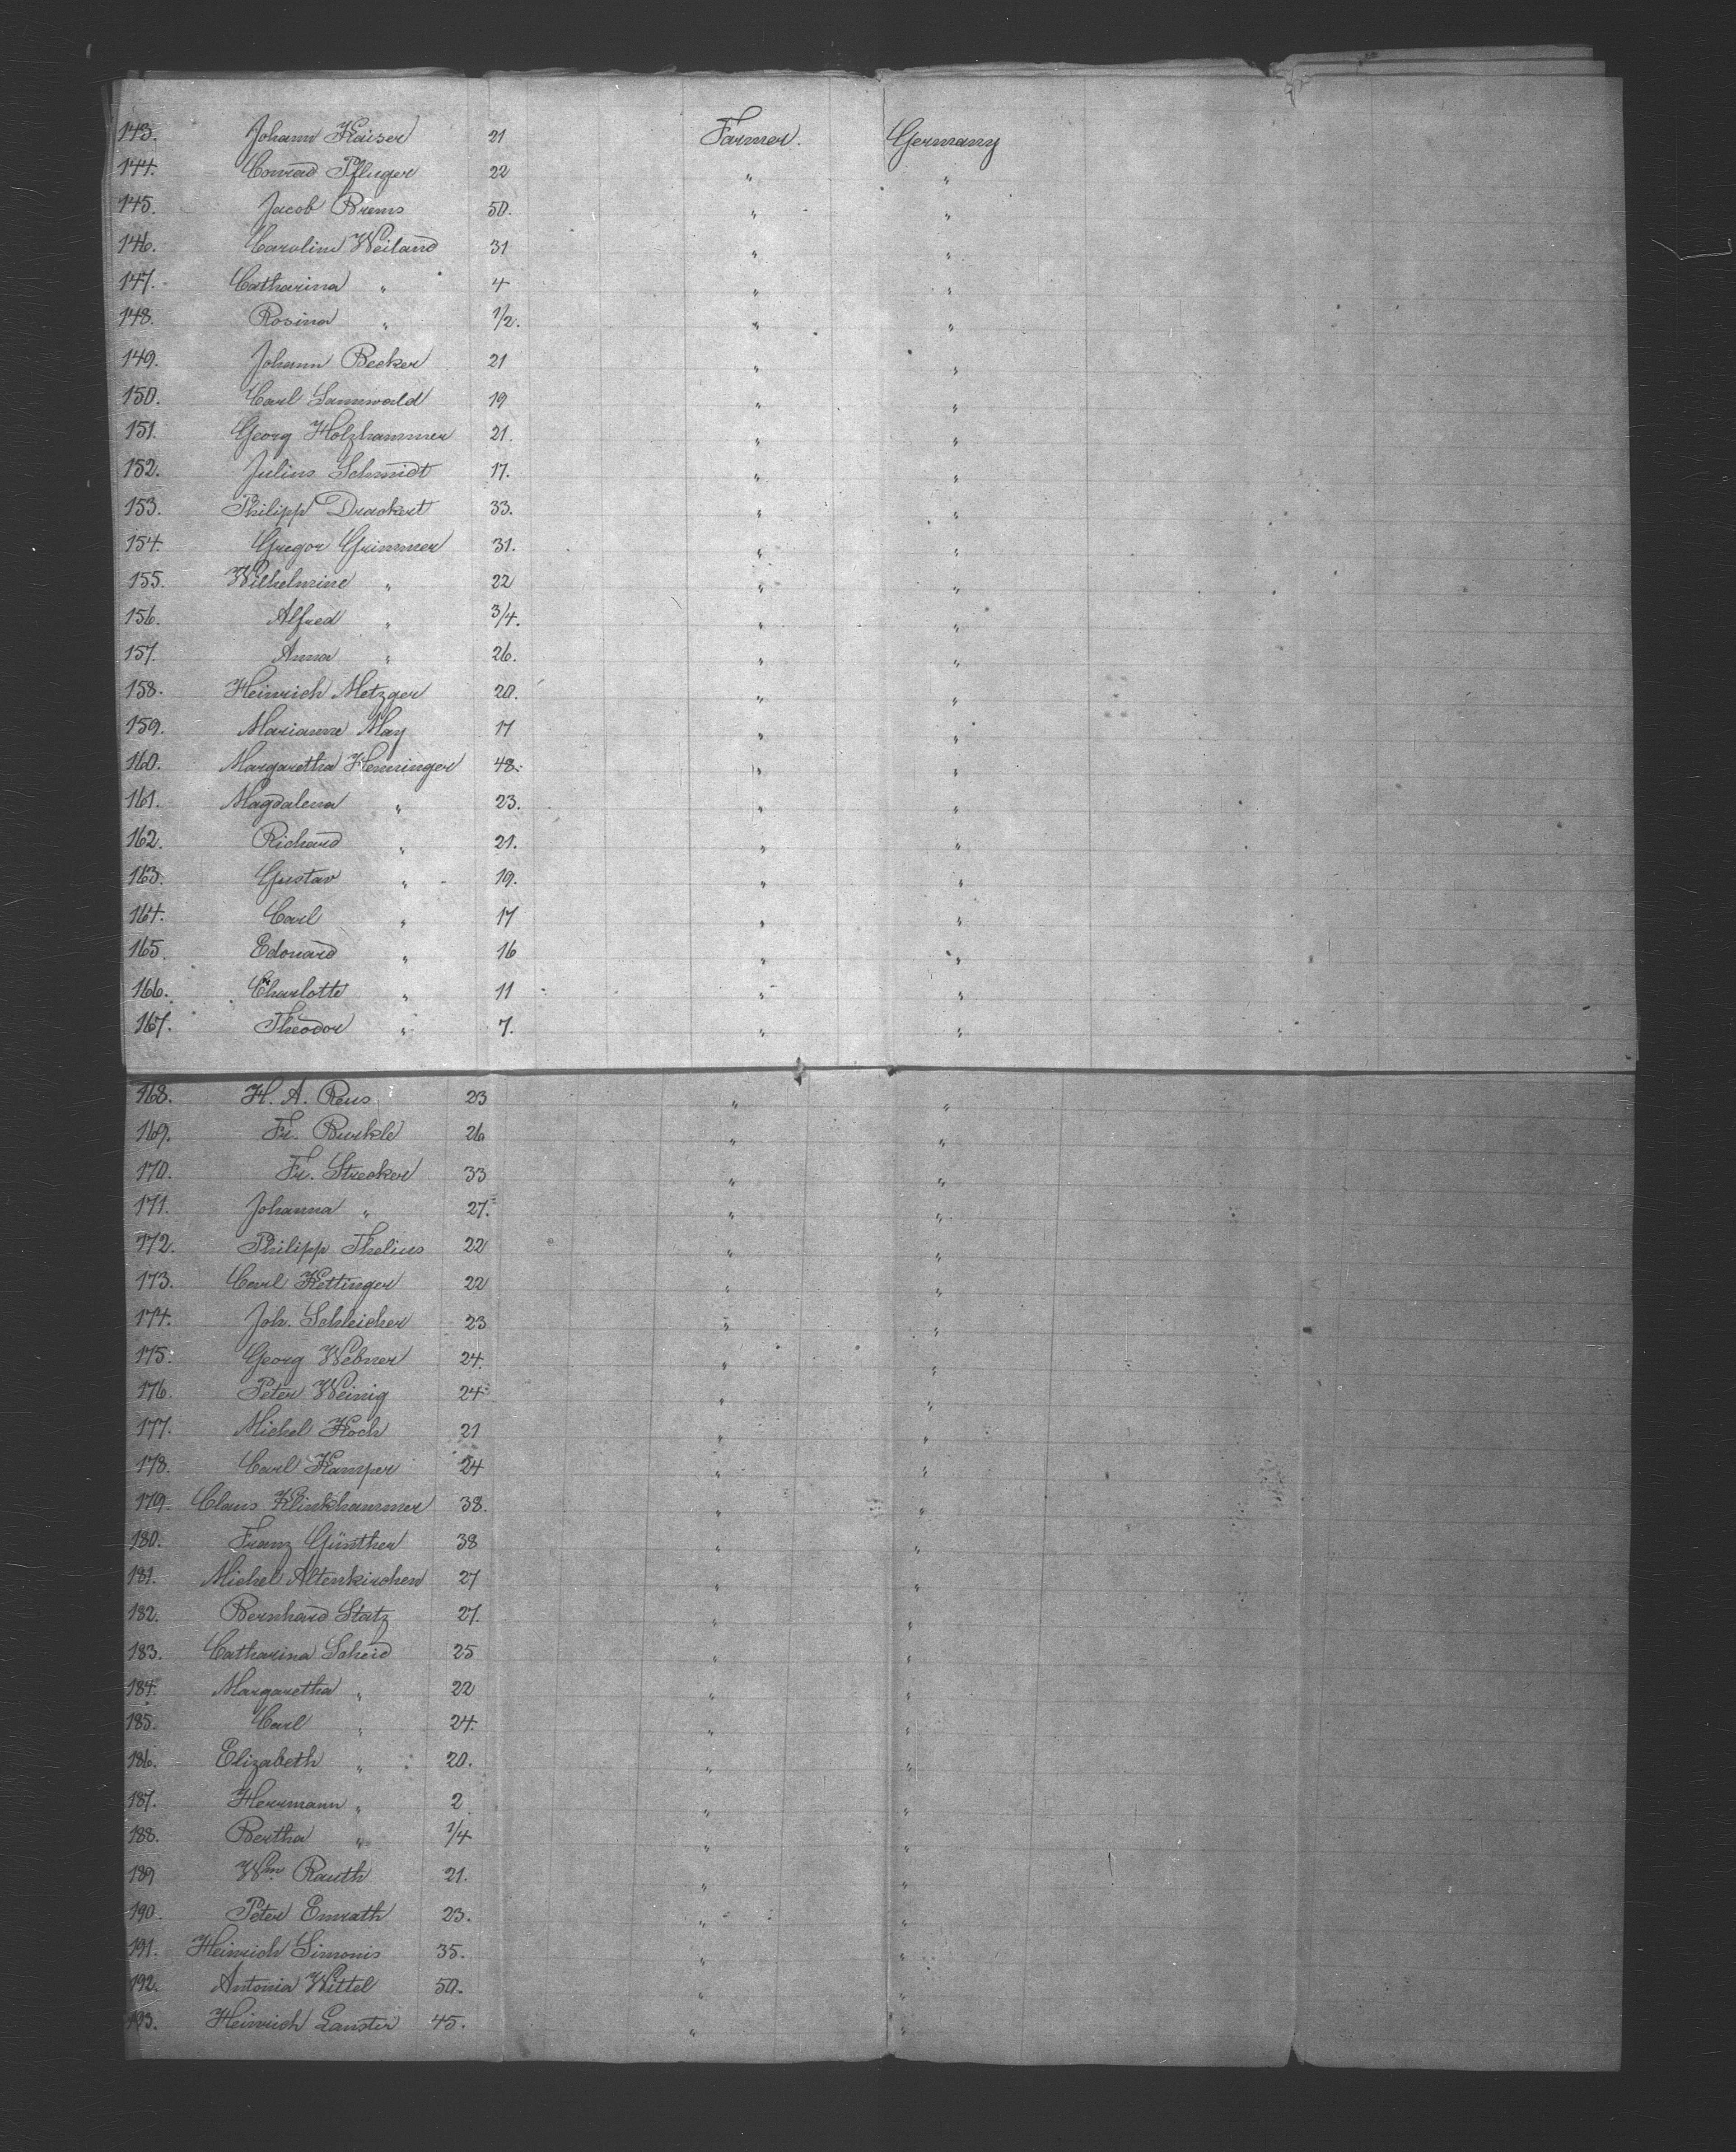 143. Johann Kaiser 21 Farmer. Germany
144. Conrad Pfluger 22 " "
145. Jacob Brems 50. " "
146. Carolina Weiland 31 " "
147. Catharina " 4 " "
148. Rosina " 1/2. " "
149. Johann Becker 21 " "
150. Carl Sannwald 19 " "
151. Georg Holzhammer 21. " "
152. Julius Schmidt 17. " "
153. Philipp Drackert 33. " "
154. Gregor Grimmer 31. " "
155. Wilhelmine " 22 " "
156. Alfred " 3/4. " "
157. Anna " 26. " "
158. Heinrich Metzger 20. " "
159. Marianne May 17 " "
160. Margaretha Henninger 48. " "
161. Magdalena " 23. " "
162. Richard " 21. " "
163. Gustav " 19. " "
164. Carl " 17 " "
165. Edouard " 16 " "
166. Charlotte " 11 " "
167. Theodor " 7. " "
168. H. A. Reus 23 " "
169. Fr. Burkle 26 " "
170. Fr. Strecker 33 " "
171. Johanna " 27. " "
172. Philipp Thelius 22 " "
173. Carl Kettinger 22 " "
174. Joh. Schleicher 23 " "
175. Georg Webner 24. " "
176. Peter Weinig 24 " "
177. Michel Koch 21 " "
178. Carl Kamper 24 " "
179. Claus Klinkhammer 38. " "
180. Franz Günther 38 " "
181. Michel Altenkirchen 27 " "
182. Bernhard Statz 27. " "
183. Catharina Scheid 25 " "
184. Margaretha " 22 " "
185. Carl " 24. " "
186. Elizabeth " 20. " "
187. Herrmann " 2 " "
188. Bertha " 1/4 " "
189 Wm. Rauth 21. " "
190. Peter Emrath 23. " "
191. Heinrich Simonis 35. " "
192. Antonia Wittel 50. " "
193. Heinrich Lanster 45. " "